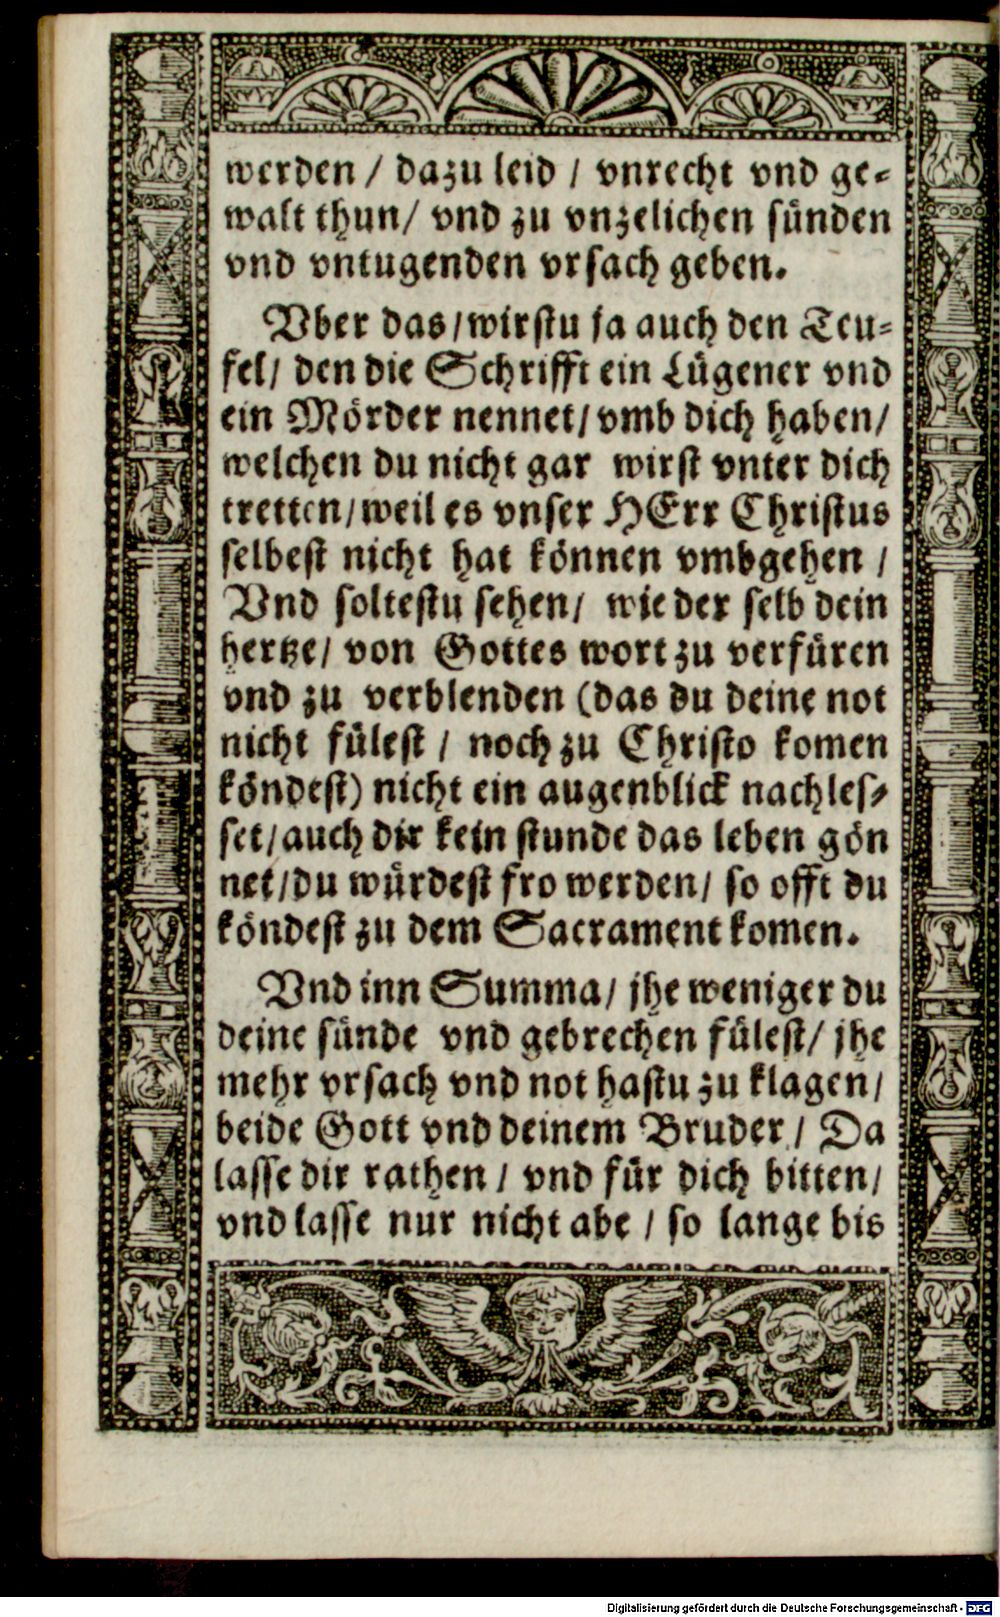 werden / dazu leid / vnrecht vnd ge-
walt thun/ vnd zu vnzelichen sünden
vnd vntugenden vrsach geben.
Vber das/wirstu ja auch den Teu-
fel/ den die Schrifft ein Lügener vnd
ein Mörder nennet/vmb dich haben/
welchen du nicht gar wirst vnter dich
tretten/weil es vnser HErr Christus
selbest nicht hat können vmbgehen /
Vnd soltestu sehen/ wie der selb dein
hertze/ von Gottes wort zu verfüren
vnd zu verblenden (das du deine not
nicht fülest / noch zu Christo komen
köndest) nicht ein augenblick nachles-
set/auch dir kein stunde das leben gön
net/du würdest fro werden/ so offt du
köndest zu dem Sacrament komen.
Vnd inn Summa/ jhe weniger du
deine sünde vnd gebrechen fülest/ jhe
mehr vrsach vnd not hastu zu klagen/
beide Gott vnd deinem Bruder/ Da
lasse dir rathen / vnd für dich bitten/
vnd lasse nur nicht abe / so lange bis
Digitalisierung gefördert durch die Deutsche Forschungsgemeinschaft - DFG